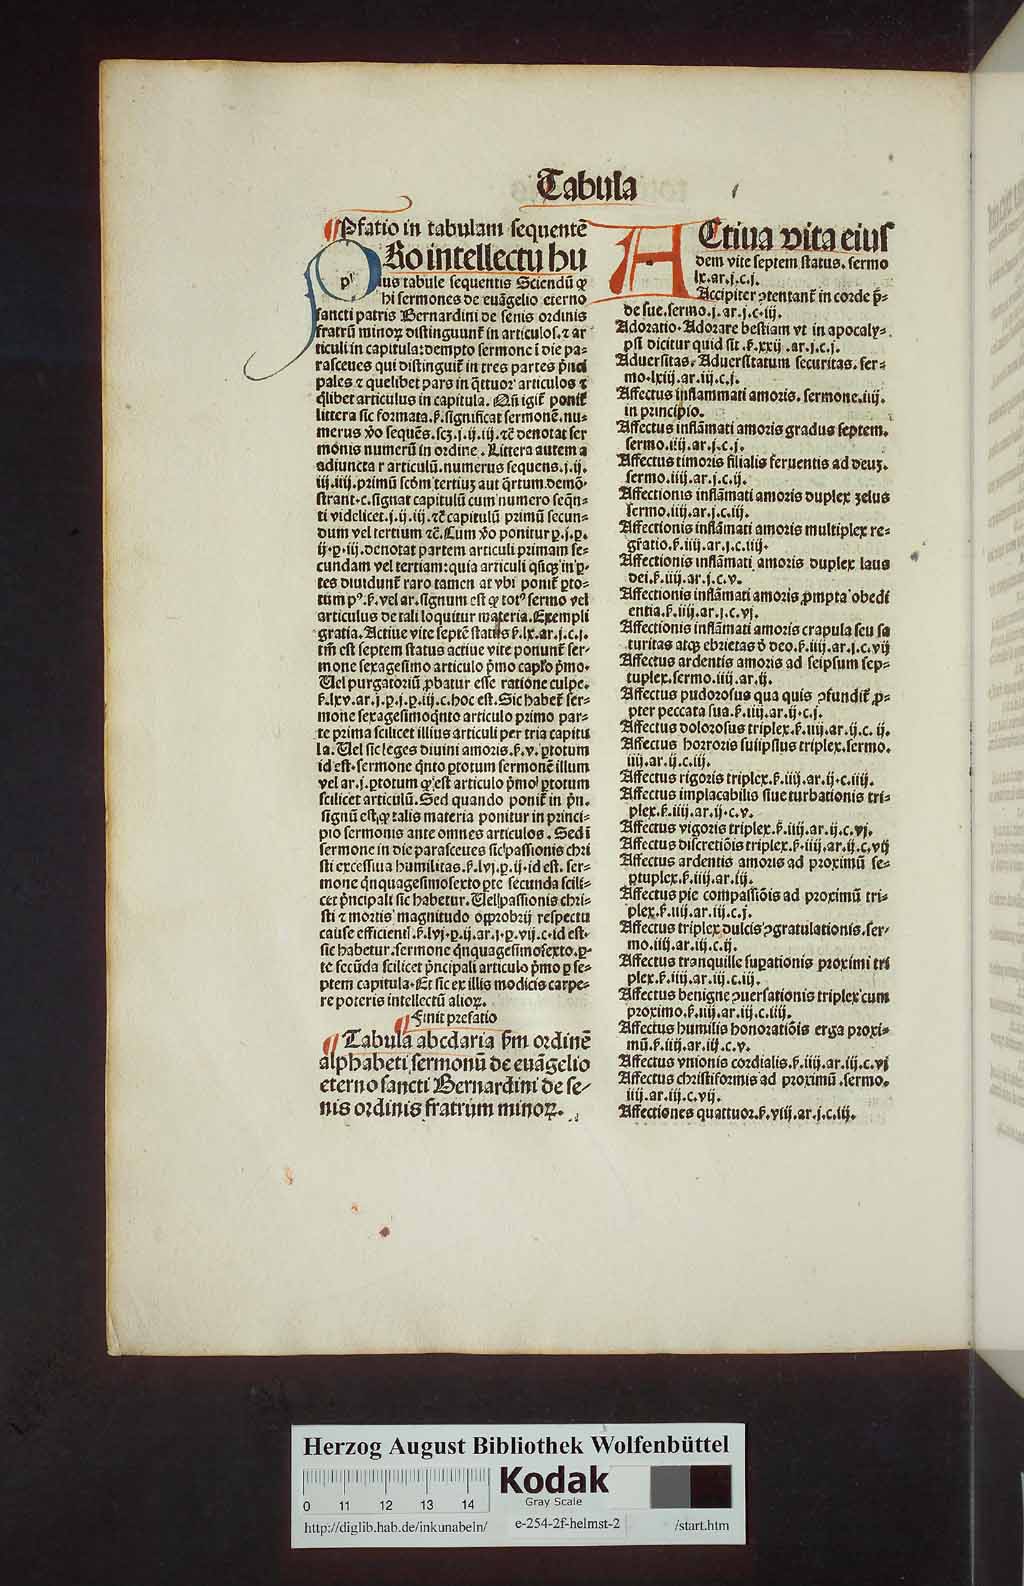 Tabula
Pfatio in tabulam sequentē
Ro intellectu hu
ius tabule sequentis Sciendū ꝙ
hi sermones de euāgelio eterno
sancti patris Bernardini de senis ordinis
fratrū minoꝝ distinguunt̄ in articulos. ⁊ ar
ticuli in capitula: dempto sermone ī die pa-
rasceues qui distinguit̄ in tres partes p̄nci
pales ⁊ quelibet pars in q̄ttuor articulos ⁊
q̄libet articulus in capitula. Qn̄ igit̄ ponit̄
littera sic formata. ẜ. significat sermonē. nu-
merus v̄o sequēs. scꝫ. j. ij. iij. ⁊c̄ denotat ser
monis numerū in ordine. Littera autem a
adiuncta r articulū. numerus sequens. j. ij.
iij. iiij. primū scd̄m tertiuꝫ aut q̄rtum demō-
strant. c. signat capitulū cum numero seqn̄-
ti videlicet. j. ij. iij. ⁊c̄ capitulū primū secun-
dum vel tertium ⁊c̄. Cum v̄o ponitur p. j. p.
ij. p. iij. denotat partem articuli primam se-
cundam vel tertiam: quia articuli qn̄qꝫ in ꝑ-
tes diuidunt̄ raro tamen at vbi ponit̄ ꝑto-
tum pꝰ. ẜ. vel ar. signum est ꝙ totꝰ sermo vel
articulus de tali loquitur materia. Exempli
gratia. Actiue vite septē status ẜ. lx. ar. j. c. j.
tm̄ est septem status actiue vite ponunt̄ ser-
mone sexagesimo articulo p̄mo cap̄lo p̄mo.
Uel purgatoriū ꝓbatur esse ratione culpe.
ẜ. lxv. ar. j. p. j. p. iij. c. hoc est. Sic habet̄ ser-
mone sexagesimoq̄nto articulo primo par-
te prima scilicet illius articuli per tria capitu
la. Uel sic leges diuini amoris. ẜ. v. ꝑtotum
id est. sermone q̄nto ꝑtotum sermonē illum
vel ar. j. ꝑtotum qꝛ est articulo p̄mo ꝑtotum
scilicet articulū. Sed quando ponit̄ in pn̄.
signū est, ꝙ talis materia ponitur in princi-
pio sermonis ante omnes articulos. Sed ī
sermone in die parasceues sic passionis chri
sti excessiua humilitas. ẜ. lvj. p. ij. id est. ser-
mone q̄nquagesimosexto ꝑte secunda scili-
cet p̄ncipali sic habetur. Uel passionis chri-
sti ⁊ mortis magnitudo opprobrij respectu
cause efficientꝭ. ẜ. lvj. p. ij. ar. j. p. vij. c. id est.
sic habetur. sermone q̄nquagesimosexto. ꝑ-
te secūda scilicet p̄ncipali articulo p̄mo p se-
ptem capitula. Et sic ex illis modicis carpe-
re poteris intellectū alioꝝ.
Finit prefatio
Tabula abcdaria ẜm ordinē
alphabeti sermonū de euāgelio
eterno sancti Bernardini de se-
nis ordinis fratrum minoꝝ.
ACtiua vita eius
dem vite septem status. sermo
lx. ar. j. c. j.
Accipiter ꝯtentant̄ in corde p̄-
de sue. sermo. j. ar. j. c. iij.
Adoratio. Adorare bestiam vt in apocaly-
psi dicitur quid sit. ẜ. xxij. ar. j. c. j.
Aduersitas. Aduersitatum securitas. ser-
mo. lxiij. ar. iij. c. j.
Affectus inflammati amoris. sermone. iiij.
in principio.
Affectus inflāmati amoris gradus septem.
sermo. iiij. ar. j. c. j.
Affectus timoris filialis feruentis ad deuꝫ.
sermo. iiij. ar. j. c. ij.
Affectionis inflāmati amoris duplex zelus
sermo. iiij. ar. j. c. iij.
Affectionis inflāmati amoris multiplex re-
gr̄atio. ẜ. iiij. ar. j. c. iiij.
Affectionis inflāmati amoris duplex laus
dei. ẜ. iiij. ar. j. c. v.
Affectionis inflāmati amoris ꝓmpta obedi
entia. ẜ. iiij. ar. j. c. vj.
Affectionis inflāmati amoris crapula seu sa
turitas atqꝫ ebrietas d̄ deo. ẜ. iiij. ar. j. c. vij
Affectus ardentis amoris ad seipsum sep-
tuplex. sermo. iiij. ar. ij.
Affectus pudorosus qua quis ꝯfundit̄ ꝓ-
pter peccata sua. ẜ. iiij. ar. ij. c. j.
Affectus dolorosus triplex. ẜ. iiij. ar. ij. c. ij.
Affectus horroris suiipsius triplex. sermo.
iiij. ar. ij. c. iij.
Affectus rigoris triplex. ẜ. iiij. ar. ij. c. iiij.
Affectus implacabilis siue turbationis tri-
plex. ẜ. iiij. ar. ij. c. v.
Affectus vigoris triplex. ẜ. iiij. ar. ij. c. vj.
Affectus discretiōis triplex. ẜ. iiij. ar. ij. c. vij
Affectus ardentis amoris ad proximū se-
ptuplex. ẜ. iiij. ar. iij.
Affectus pie compassiōis ad proximū tri-
plex. ẜ. iiij. ar. iij. c. j.
Affectus triplex dulcis ꝯgratulationis. ser-
mo. iiij. ar. iij. c. ij.
Affectus tranquille suꝑationis proximi tri
plex. ẜ. iiij. ar. iij. c. iij.
Affectus benigne ꝯuersationis triplex cum
proximo. ẜ. iiij. ar. iij. c. iiij.
Affectus humilis honoratiōis erga proxi-
mū. ẜ. iiij. ar. iij. c. v.
Affectus vnionis cordialis. ẜ. iiij. ar. iij. c. vj
Affectus christiformis ad proximū. sermo.
iiij. ar. iij. c. vij.
Affectiones quattuor. ẜ. viij. ar. j. c. iij.
Herzog August Bibliothek Wolfenbüttel
Kodak
Gray Scale
0 11 12 13 14
http://diglib.hab.de/inkunabeln/ e-254-2f-helmst-2 /start.htm